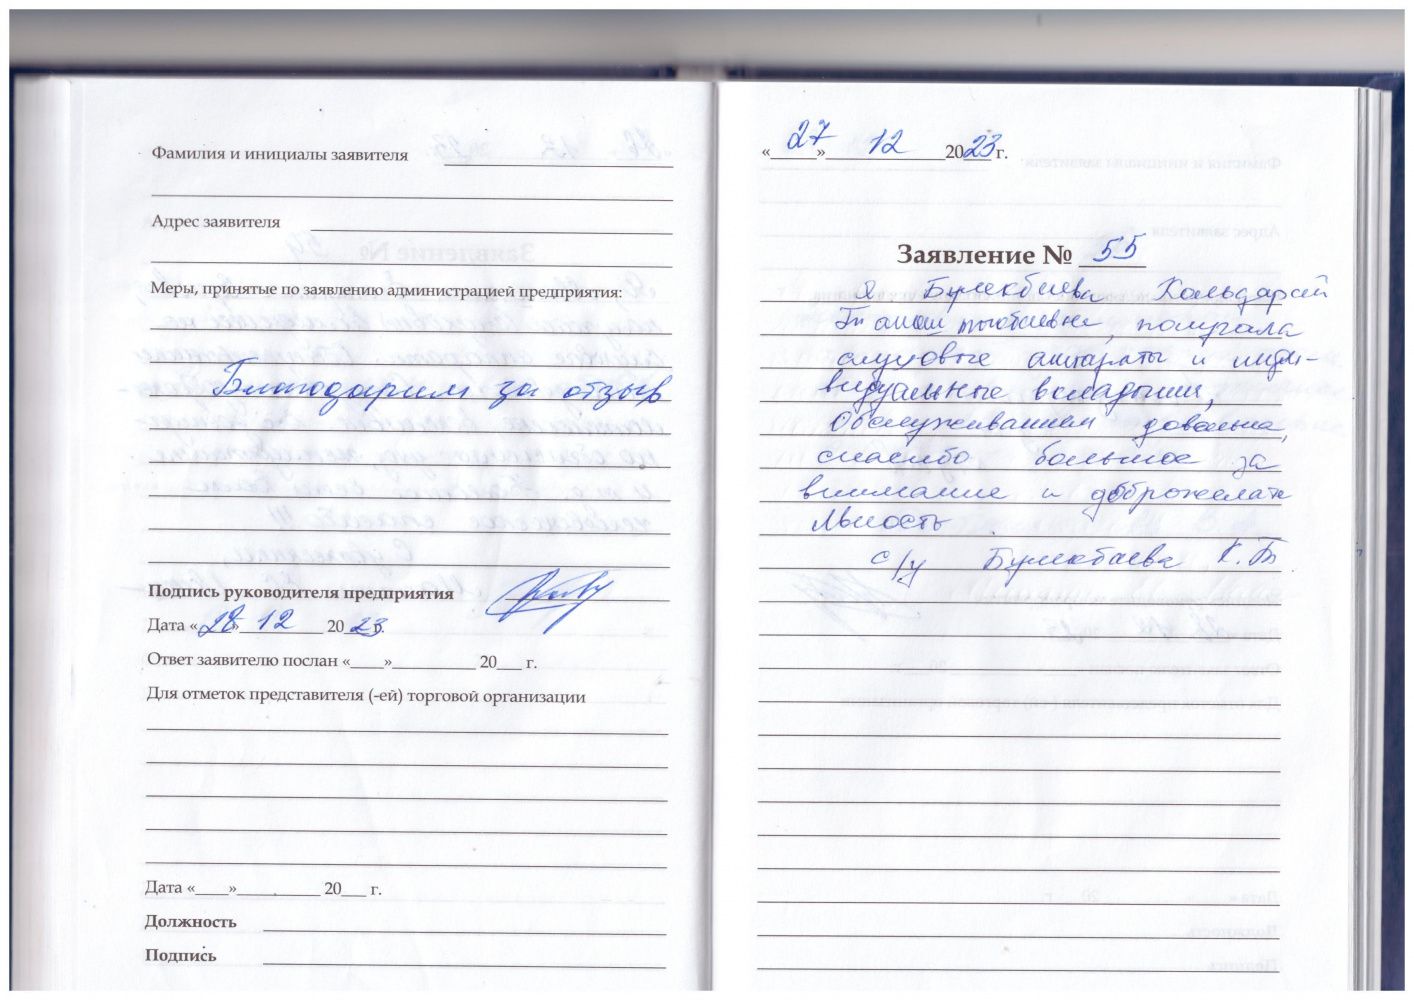 Фамилия и инициалы заявителя
Адрес заявителя
Меры, принятые по заявлению администрацией предприятия:
Благодарим за отзыв
Подпись руководителя предприятия
Дата «28» 12 2023 г.
Ответ заявителю послан «____»__________ 20___ г.
Для отметок представителя (-ей) торговой организации
Дата «____»__________ 20___ г.
Должность
Подпись
«27» 12 2023 г.
Заявление № 55
Я Булекбаева
получала
слуховые аппараты и инди-
видуальные вкладыши,
Обслуживанием довольна,
спасибо большое за
внимание и доброжелате
льность
с/у Булекбаева К.Т